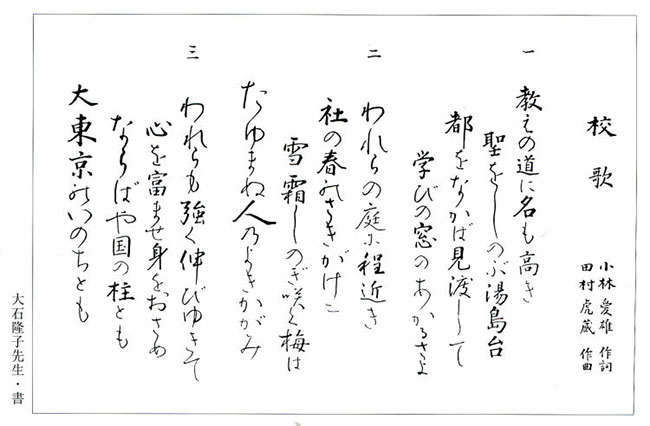 校歌
小林愛雄 作詞
田村虎蔵 作曲
一
教えの道に名も高き
聖をしのぶ湯島台
都をなかば見渡して
学びの窓のあかるさよ
二
われらの庭に程近き
社の春のさきがけに
雪霜しのぎ咲く梅は
たゆまぬ人のよきかがみ
三
われらも強く伸びゆきて
心を富ませ身をおさめ
ならばや国の柱とも
大東京のいのちとも
大石隆子先生・書